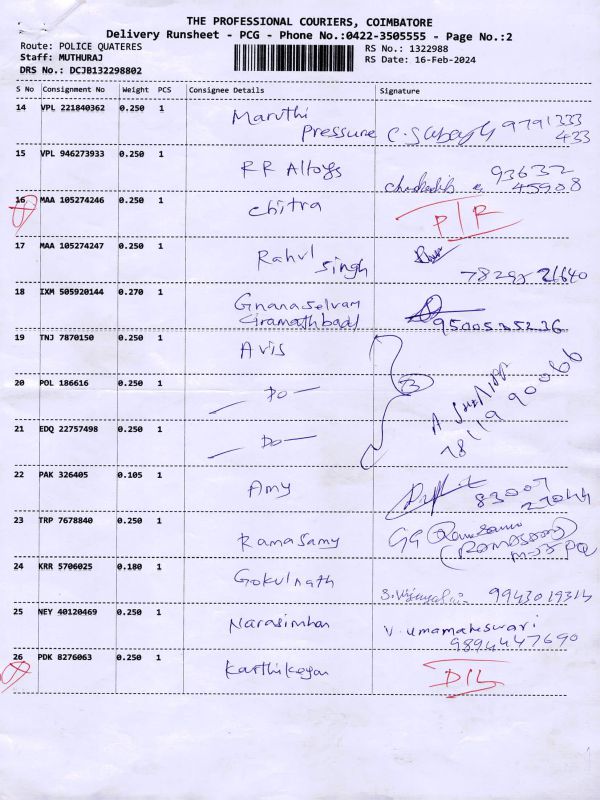 THE PROFESSIONAL COURIERS, COIMBATORE
Delivery Runsheet - PCG - Phone No.:0422-3505555 - Page No.:2
Route: POLICE QUATERES RS No.: 1322988
Staff: MUTHURAJ RS Date: 16-Feb-2024
DRS No.: DCJB132298802
S No Consignment No Weight PCS Consignee Details Signature
14 VPL 221840362 0.250 1 Maruthi Pressure 9791333 433
15 VPL 946273933 0.250 1 RR Alloys 93632 45908
16 MAA 105274246 0.250 1 Chitra P/R
17 MAA 105274247 0.250 1 Rahul Singh
18 IXM 505920144 0.270 1 Gnanaselvam
19 TNJ 7870150 0.250 1 Avis
20 POL 186616 0.250 1 — Do — 3
21 EDQ 22757498 0.250 1 — Do —
22 PAK 326405 0.105 1 Amy 83007 27044
23 TRP 7678840 0.250 1 Ramasamy
24 KRR 5706025 0.180 1 Gokulnath 9943019314
25 NEY 40120469 0.250 1 Narasimhan V. Umamaheswari
9894447690
26 PDK 8276063 0.250 1 Karthikeyan D/L